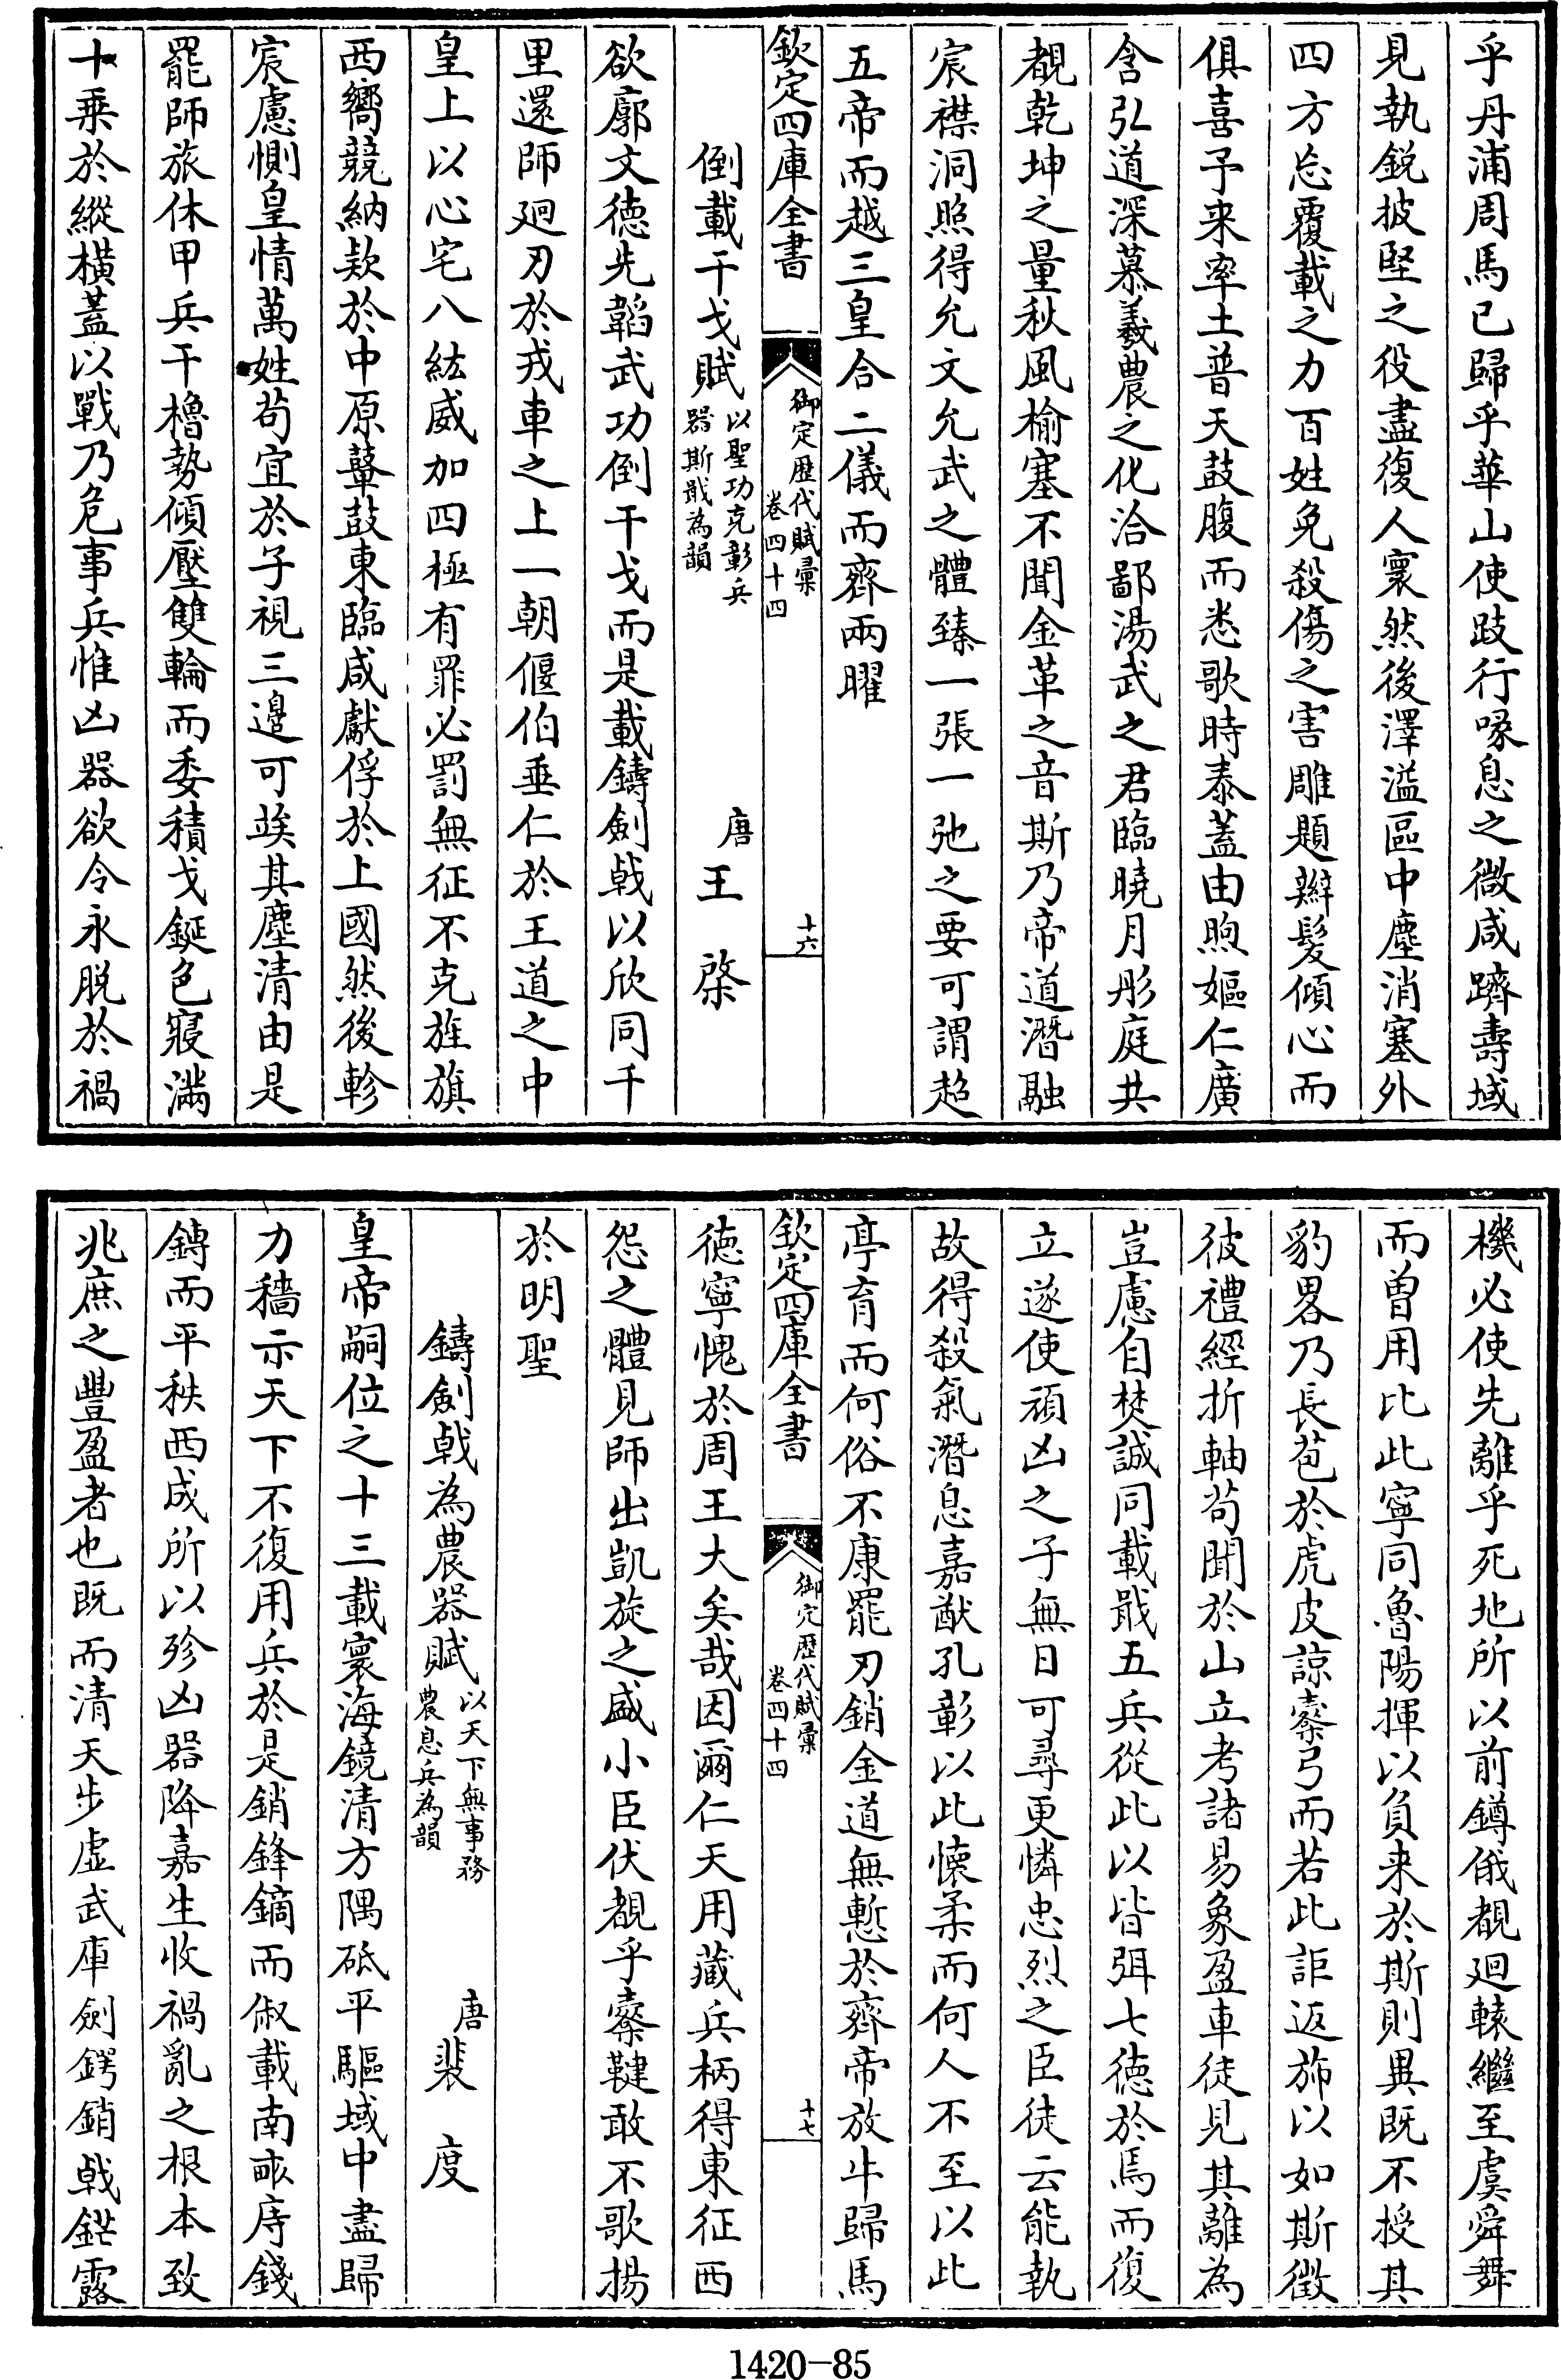 乎丹浦周馬已歸乎華山使跂行喙息之微咸躋壽域
見執鋭披堅之役盡復人寰然後澤溢區中塵消塞外
四方忘覆載之力百姓免殺傷之害雕題辮髮傾心而
俱喜予来率土普天鼓腹而悉歌時泰蓋由煦嫗仁廣
含弘道深慕羲農之化洽鄙湯武之君臨曉月彤庭共
覩乾坤之量秋風榆塞不聞金革之音斯乃帝道潛融
宸襟洞照得允文允武之體臻一張一弛之要可謂超
五帝而越三皇合二儀而齊兩曜
欽定四庫全書 御定歴代賦彙 卷四十四 十六
倒載干戈賦 以聖功克彰兵器斯戢為韻 唐 王棨
欲廓文德先韜武功倒干戈而是載鑄劍戟以欣同千
里還師廻刃於戎車之上一朝偃伯垂仁於王道之中
皇上以心宅八紘威加四極有罪必罰無征不克旌旗
西嚮競納款於中原鼙鼓東臨咸獻俘於上國然後軫
宸慮惻皇情萬姓苟宜於子視三邉可竢其塵清由是
罷師旅休甲兵干櫓勢傾壓雙輪而委積戈鋋色寢滿
十乗於縱横蓋以戰乃危事兵惟凶器欲令永脱於禍
機必使先離乎死地所以前鐏俄覩廻轅繼至虞舜舞
而曽用比此寧同魯陽揮以負来於斯則異既不授其
豹畧乃長苞於虎皮諒櫜弓而若此詎返斾以如斯徵
彼禮經折軸苟聞於山立考諸易象盈車徒見其離為
豈慮自焚誠同載戢五兵從此以皆弭七徳於焉而復
立遂使頑凶之子無日可尋更憐忠烈之臣徒云能執
故得殺氣潛息嘉猷孔彰以此懷柔而何人不至以此
亭育而何俗不康罷刃銷金道無慙於齊帝放牛歸馬
欽定四庫全書 御定歴代賦彙 卷四十四 十七
徳寧愧於周王大矣哉因爾仁天用藏兵柄得東征西
怨之體見師出凱旋之盛小臣伏覩乎櫜鞬敢不歌揚
於明聖
鑄劍戟為農器賦 以天下無事務農息兵為韻 唐 裴度
皇帝嗣位之十三載寰海鏡清方隅砥平驅域中盡歸
力穡示天下不復用兵於是銷鋒鏑而俶載南畝庤錢
鎛而平秩西成所以殄凶器降嘉生收禍亂之根本致
兆庶之豐盈者也既而清天步虚武庫劍鍔銷戟鋩露
1420-85